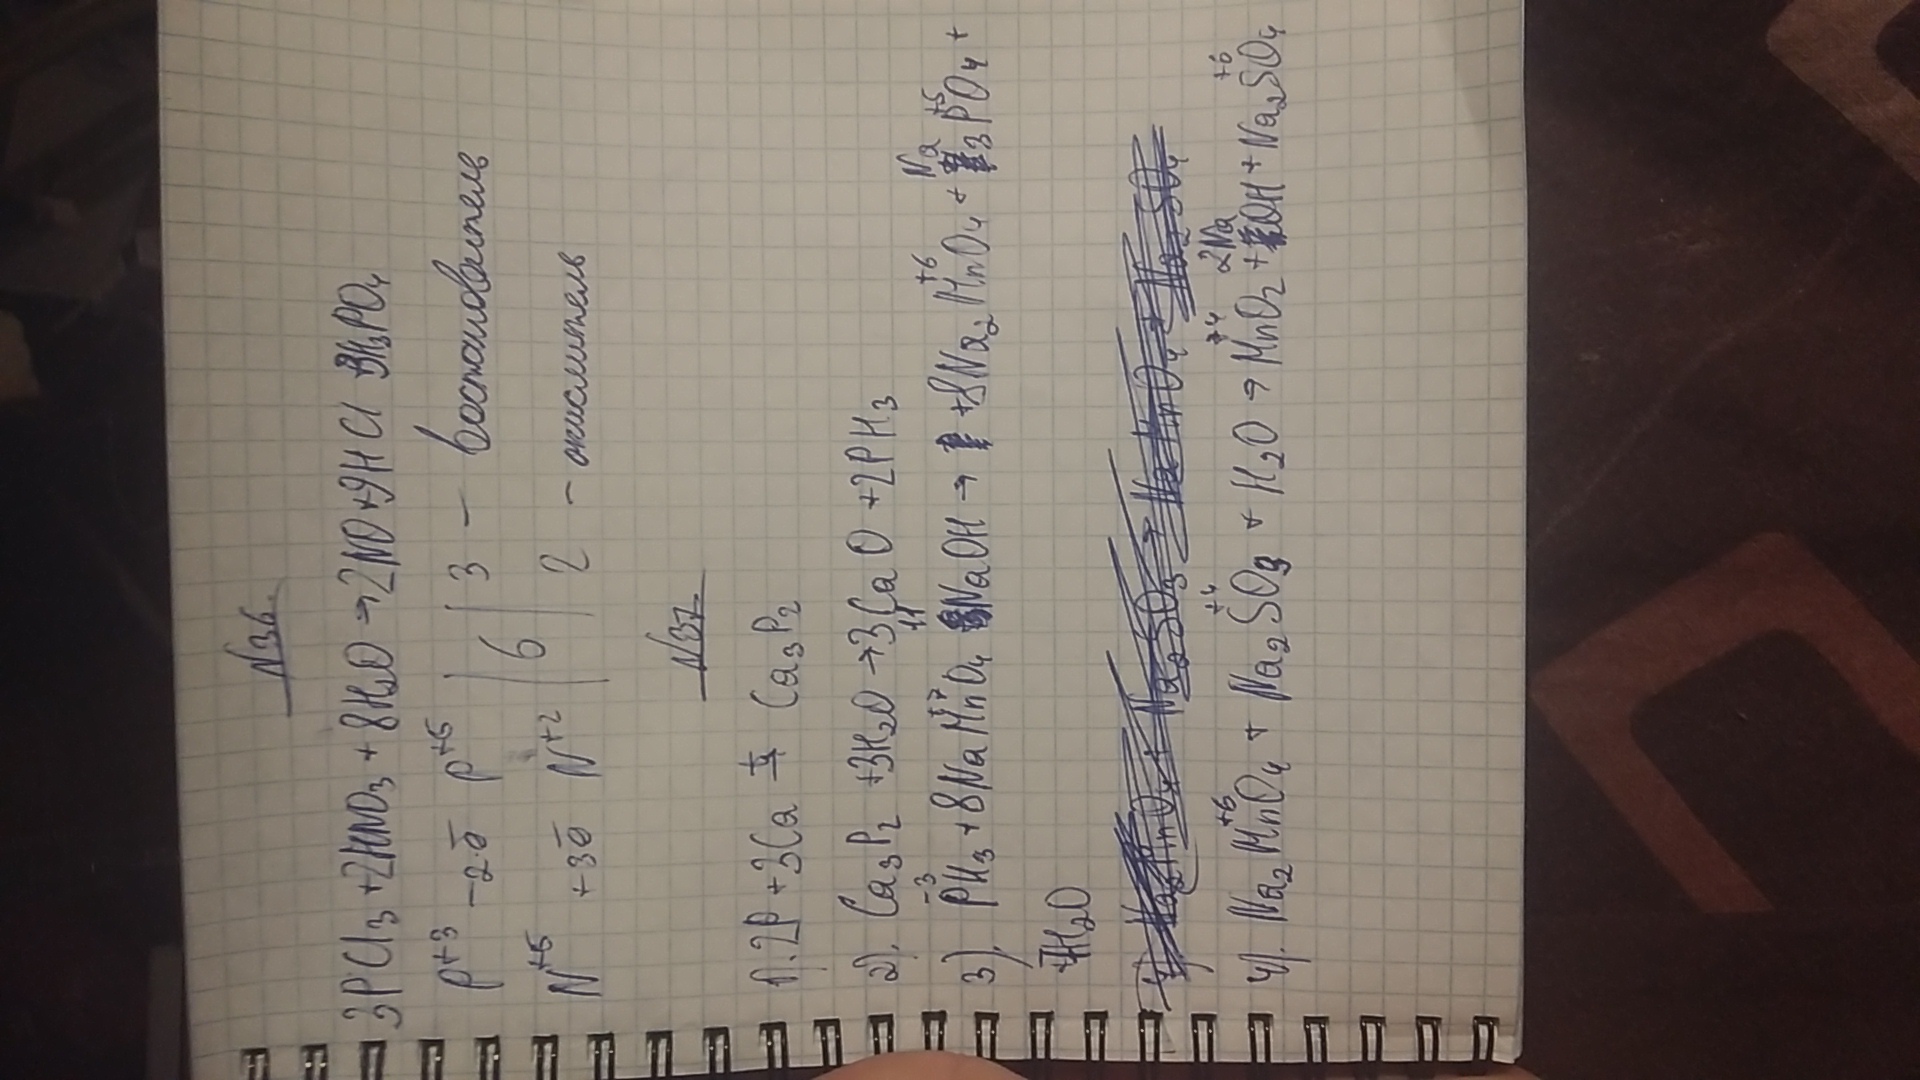 N36.
3PCl₃ + 2HNO₃ + 8H₂O → 2NO + 9HCl 3H₃PO₄
P⁺³ -2ē P⁺⁵ | 6 | 3 - восстановитель
N⁺⁵ +3ē N⁺² | 2 - окислитель
N37.
1). 2P + 3Ca t= Ca₃P₂
2). Ca₃P₂ + 3H₂O → 3CaO + 2PH₃
3). P⁻³H₃ + 8NaMn⁺⁷O₄ + 11NaOH → + 8Na₂Mn⁺⁶O₄ + Na₃P⁺⁵O₄ +
7H₂O
4). Na₂Mn⁺⁶O₄ + Na₂S⁺⁴O₃ + H₂O → Mn⁺⁴O₂ + 2NaOH + Na₂S⁺⁶O₄